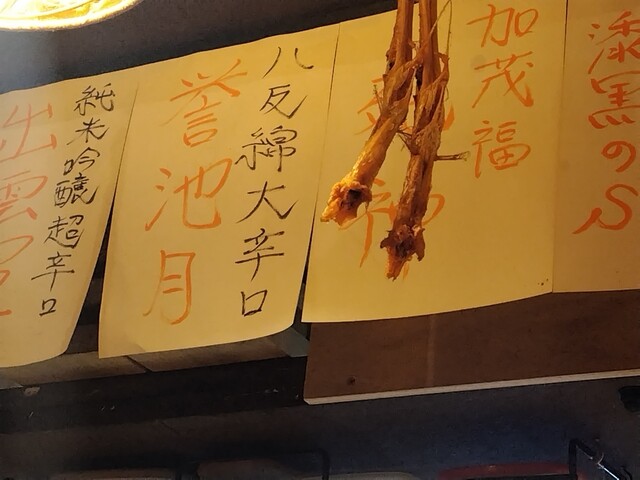 漆黒のS
加茂福
死神
八反綿大辛口
誉池月
純米吟醸超辛口
出雲